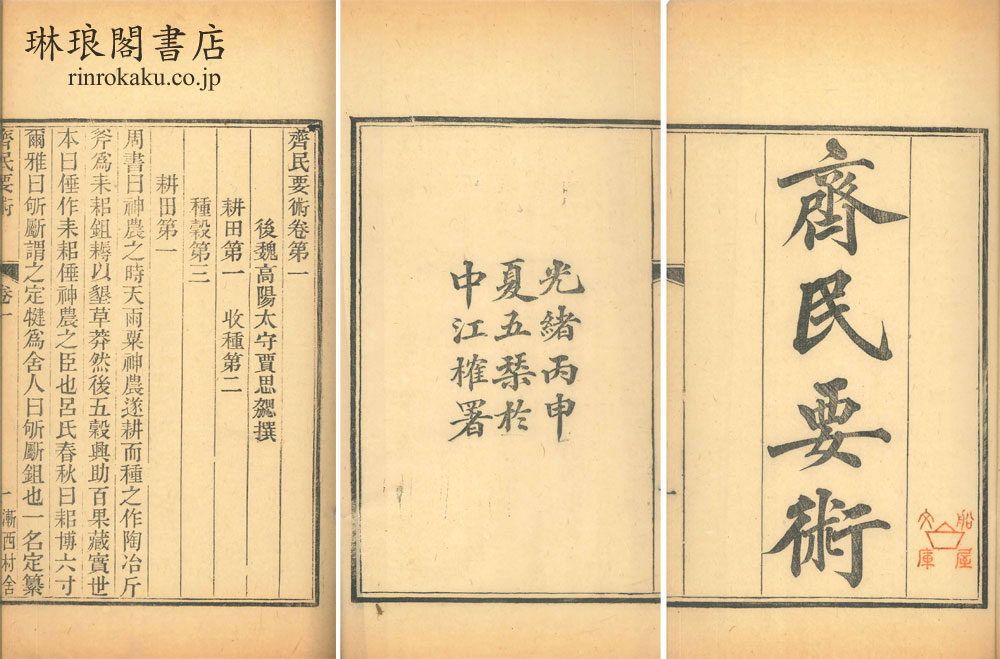 琳琅閣書店
rinrokaku.co.jp
齊民要術
船屋
文庫
光緒丙申
夏五栞於
中江榷署
齊民要術卷第一
後魏高陽太守賈思勰撰
耕田第一　收種第二
種穀第三
耕田第一
周書曰神農之時天雨粟神農遂耕而種之作陶冶斤
斧爲耒耜鉏耨以墾草莽然後五穀興助百果藏實世
本曰倕作耒耜倕神農之臣也呂氏春秋曰耜博六寸
爾雅曰斪斸謂之定犍爲舍人曰斪斸鉏也一名定纂
齊民要術
卷一
一
漸西村舍